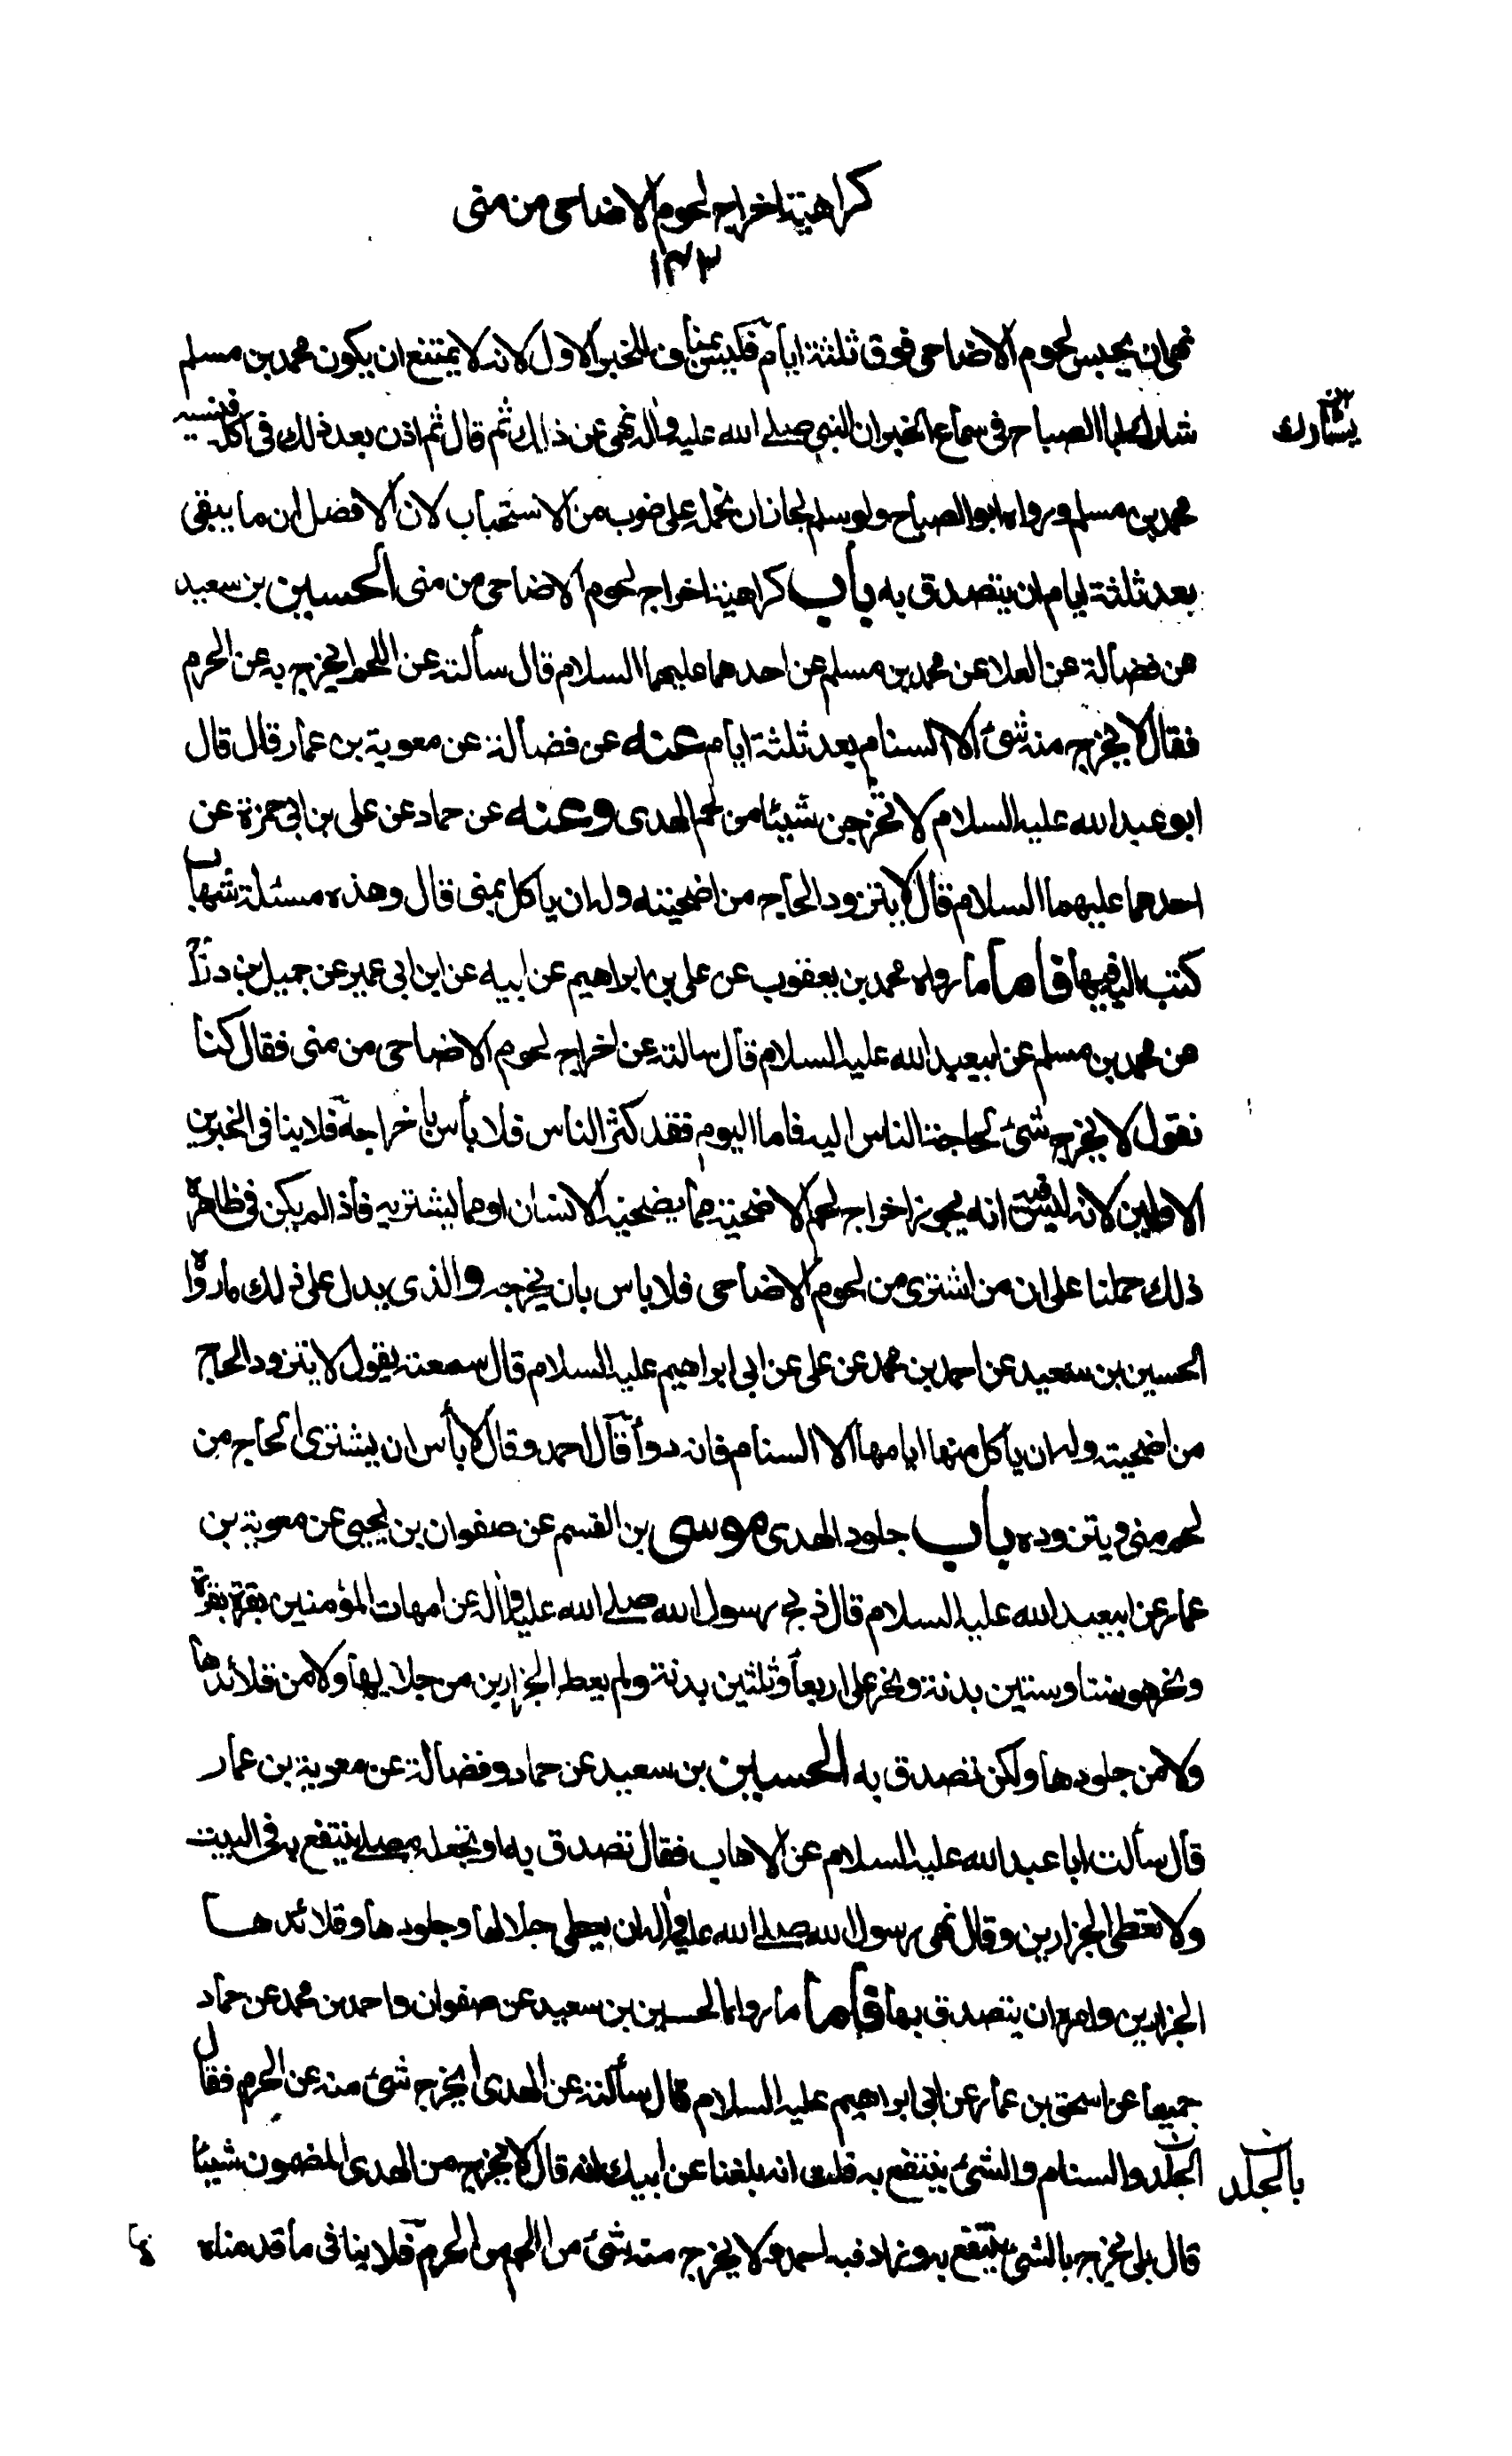 كراهية اخراج لحوم الاضاحى من منى
١٤٣
نهى ان يحبس لحوم الاضاحى فوق ثلثة ايام فليس بمناف للخبر الاول لانه لا يمتنع ان يكون محمد بن مسلم
شارك ابا الصباح فى سماع الخبر ان النبى صلى الله عليه وآله نهى عن ذلك ثم قال ثم اذن بعد ذلك فى اكله فنسيه
يشارك
محمد بن مسلم ورواه ابو الصباح ولو سلم لجاز ان نحمله على ضرب من الاستحباب لان الافضل ان ما يبقى
بعد ثلثة ايام ان يتصدق به باب كراهية اخراج لحوم الاضاحى من منى الحسين بن سعيد
عن فضالة عن العلا عن محمد بن مسلم عن احدهما عليهما السلام قال سألته عن اللحم ايخرج به عن الحرم
فقال لا يخرج منه شئ الا السنام بعد ثلثة ايام عنه عن فضالة عن معوية بن عمار قال قال
ابو عبد الله عليه السلام لا تخرجن شيئا من لحم الهدى وعنه عن حماد عن على بن ابى حمزة عن
احدهما عليهما السلام قال لا يتزود الحاج من اضحيته وله ان ياكل بمنى قال وهذه مسئلة شهاب
كتب اليه فيها فاما ما رواه محمد بن يعقوب عن على بن ابراهيم عن ابيه عن ابن ابى عمير عن جميل بن دراج
عن محمد بن مسلم عن ابيعبد الله عليه السلام قال سالته عن اخراج لحوم الاضاحى من منى فقال كنا
نقول لا يخرج شئ لحاجة الناس اليه فاما اليوم فقد كثر الناس فلا بأس باخراجه فلا ينافى الخبرين
الاولين لانه ليس فيه انه يجوز اخراج لحم الاضحية مما يضحيه الانسان او مما يشتريه فاذا لم يكن فى ظاهره
ذلك حملنا على ان من اشترى من لحوم الاضاحى فلا باس بان يخرجه والذى يدل على ذلك ما رواه
الحسين بن سعيد عن احمد بن محمد عن على عن ابى ابراهيم عليه السلام قال سمعته يقول لا يتزود الحاج
من اضحيته وله ان ياكل منها ايامها الا السنام فانه دواء قال احمد وقال لا بأس ان يشترى الحاج من
لحم منى ويتزوده باب جلود الهدى موسى بن القسم عن صفوان بن يحيى عن معوية بن
عمار عن ابيعبد الله عليه السلام قال ذبح رسول الله صلى الله عليه وآله عن امهات المؤمنين بقرة بقرة
ونحر هو ستا وستين بدنة ونحر على اربعا وثلثين بدنة ولم يعط الجزارين من جلالها ولا من قلائدها
ولا من جلودها ولكن تصدق به الحسين بن سعيد عن حماد وفضالة عن معوية بن عمار
قال سألت ابا عبد الله عليه السلام عن الاهاب فقال تصدق به او تجعله مصلى ينتفع به فى البيت
ولا تعطى الجزارين وقال نهى رسول الله صلى الله عليه وآله ان يعطى جلالها وجلودها وقلائدها
الجزارين وامر ان يتصدق بها فاما ما رواه الحسين بن سعيد عن صفوان واحمد بن محمد عن حماد
جميعا عن اسحق بن عمار عن ابى ابراهيم عليه السلام قال سألته عن الهدى ايخرج شئ منه عن الحرم فقال
الجلد والسنام والشئ ينتفع به قلت انه بلغنا عن ابيك انه قال لا يخرج من الهدى المضمون شيئا
بالجلد
قال بلى يخرج بالشئ ينتفع به وزاد فيه احمد ولا يخرج منه شئ من اللحم من الحرم فلا ينافى ما قدمناه